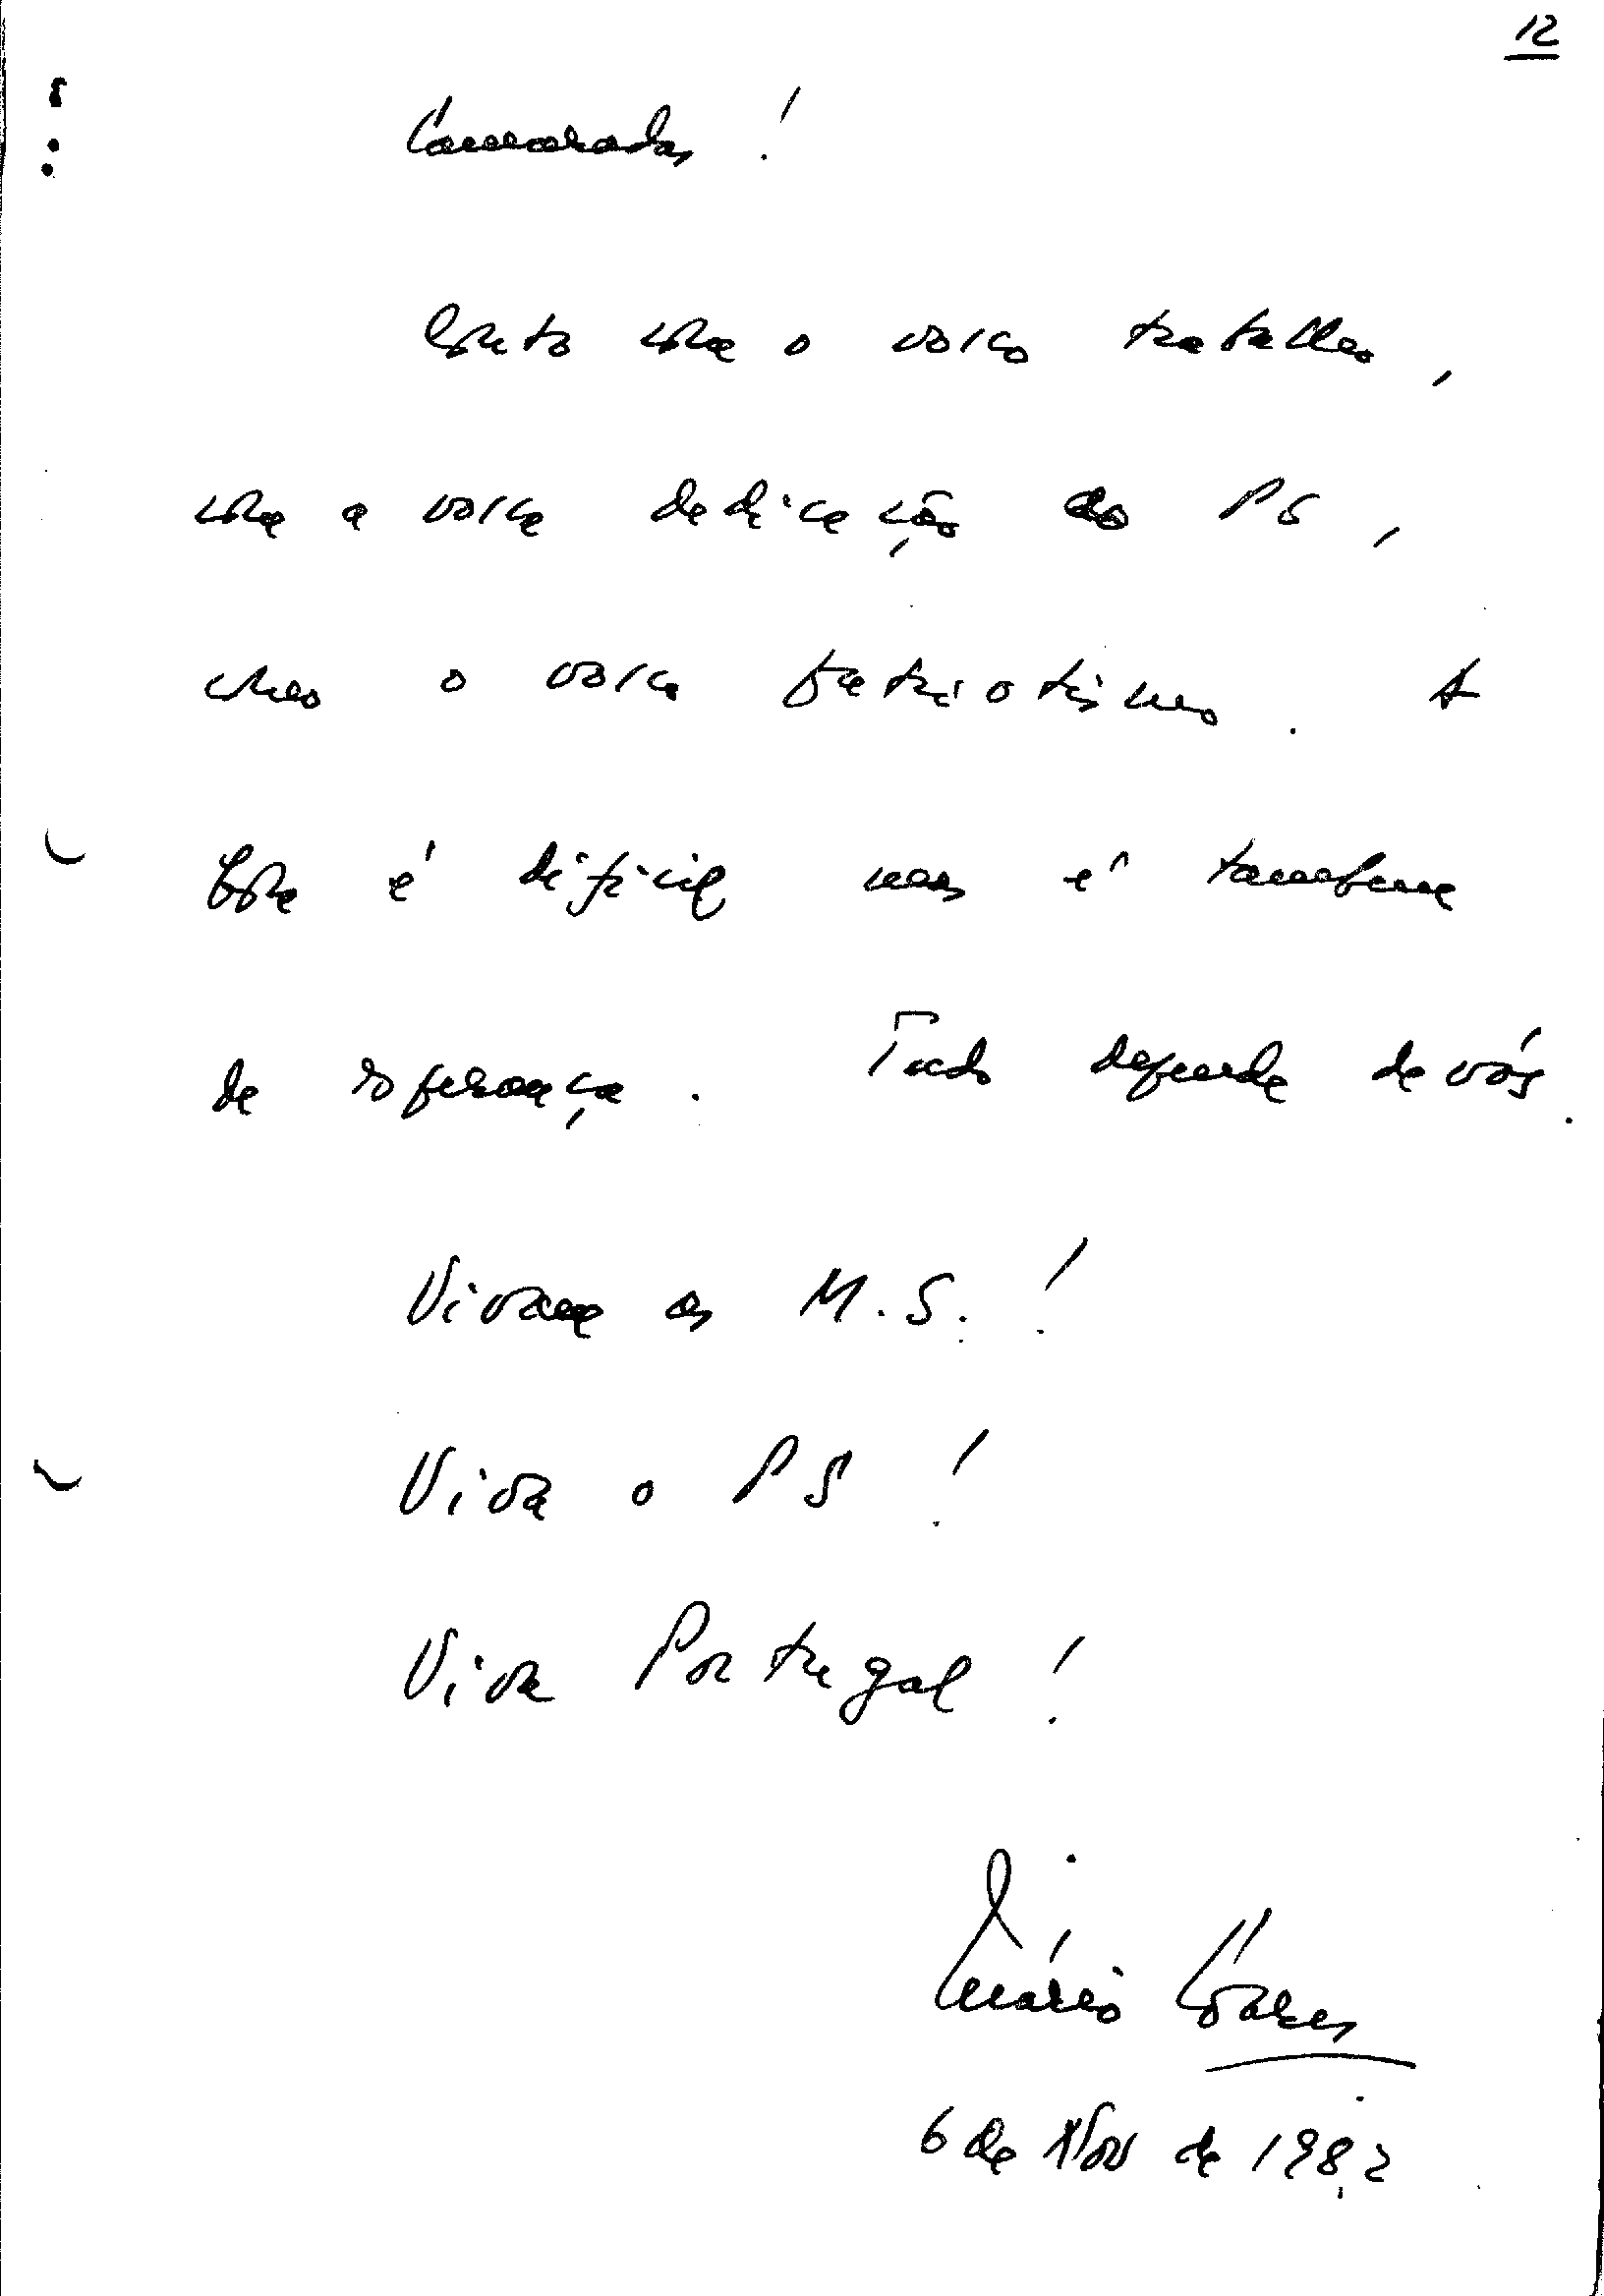 12
Camaradas!
Conto com o vosso trabalho,
com a vossa dedicação ao PS,
com o vosso patriotismo. A
hora é difícil mas é também
de esperança. Tudo depende de vós.
Vivam os M.S.!
Viva o PS!
Viva Portugal!
Mário Soares
6 de Nov de 1982